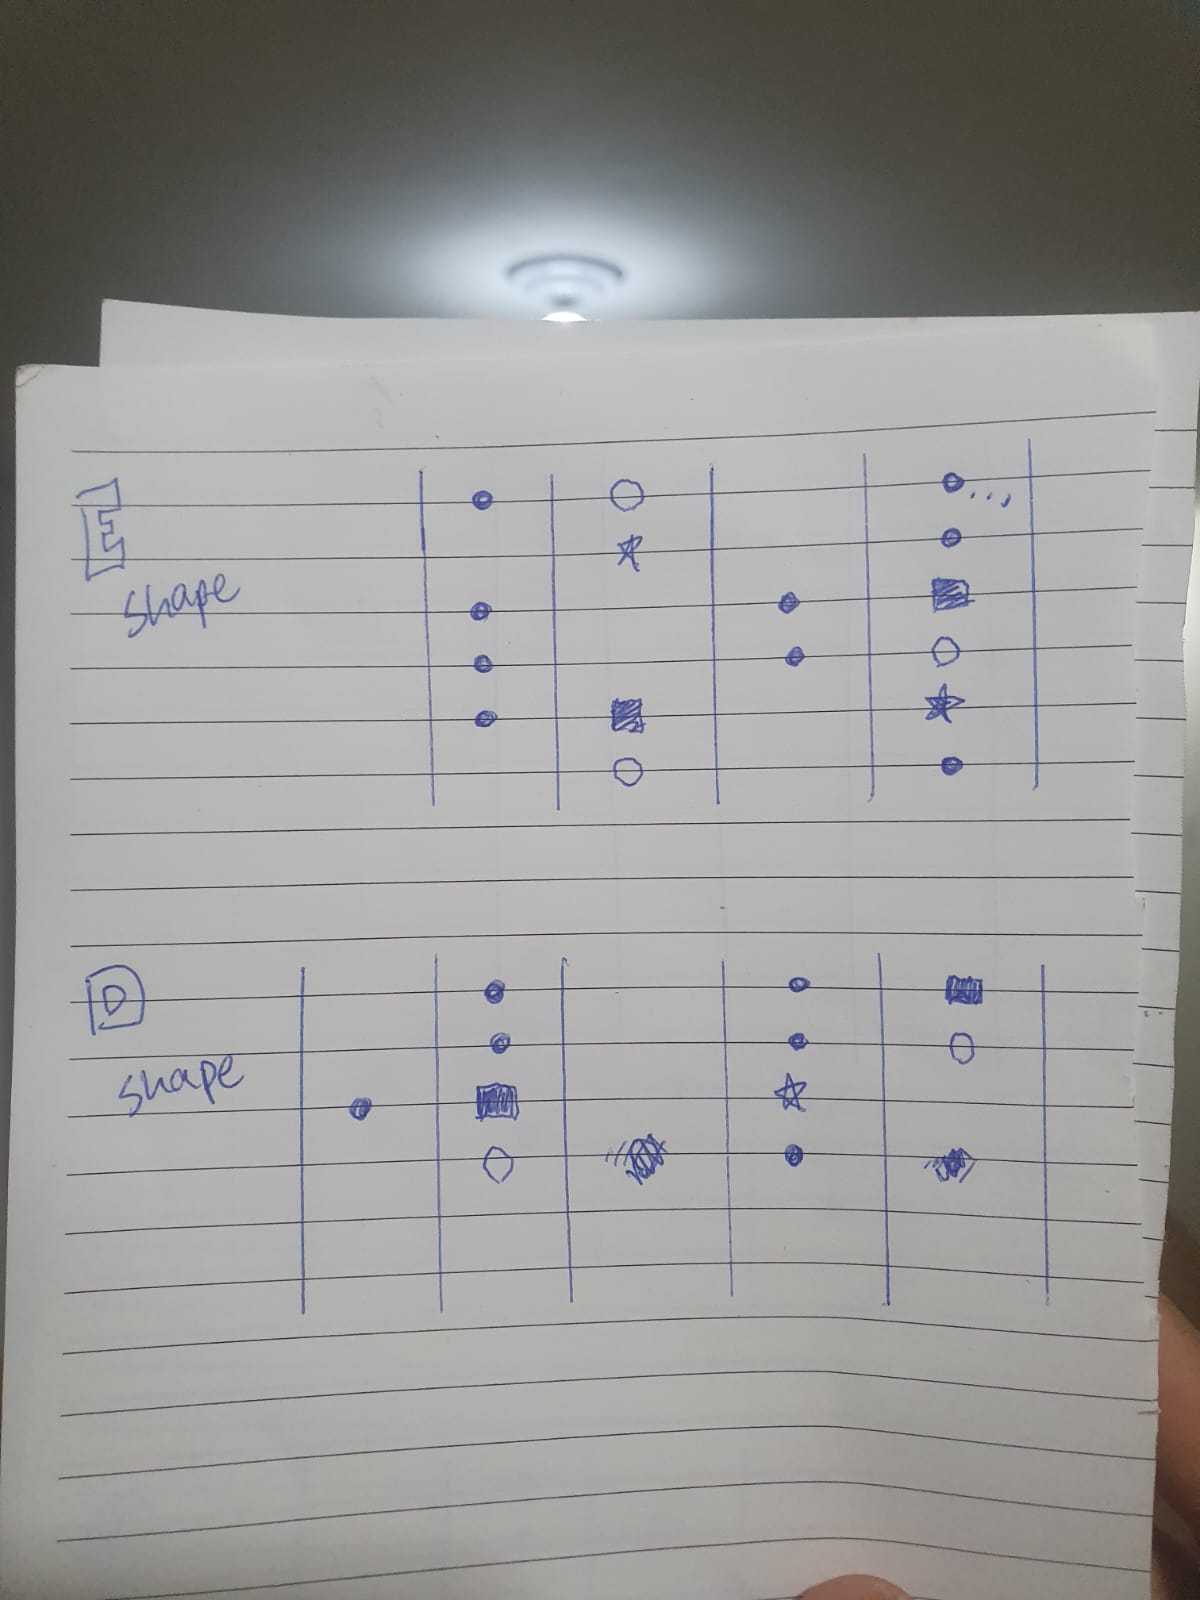 E
shape
D
shape